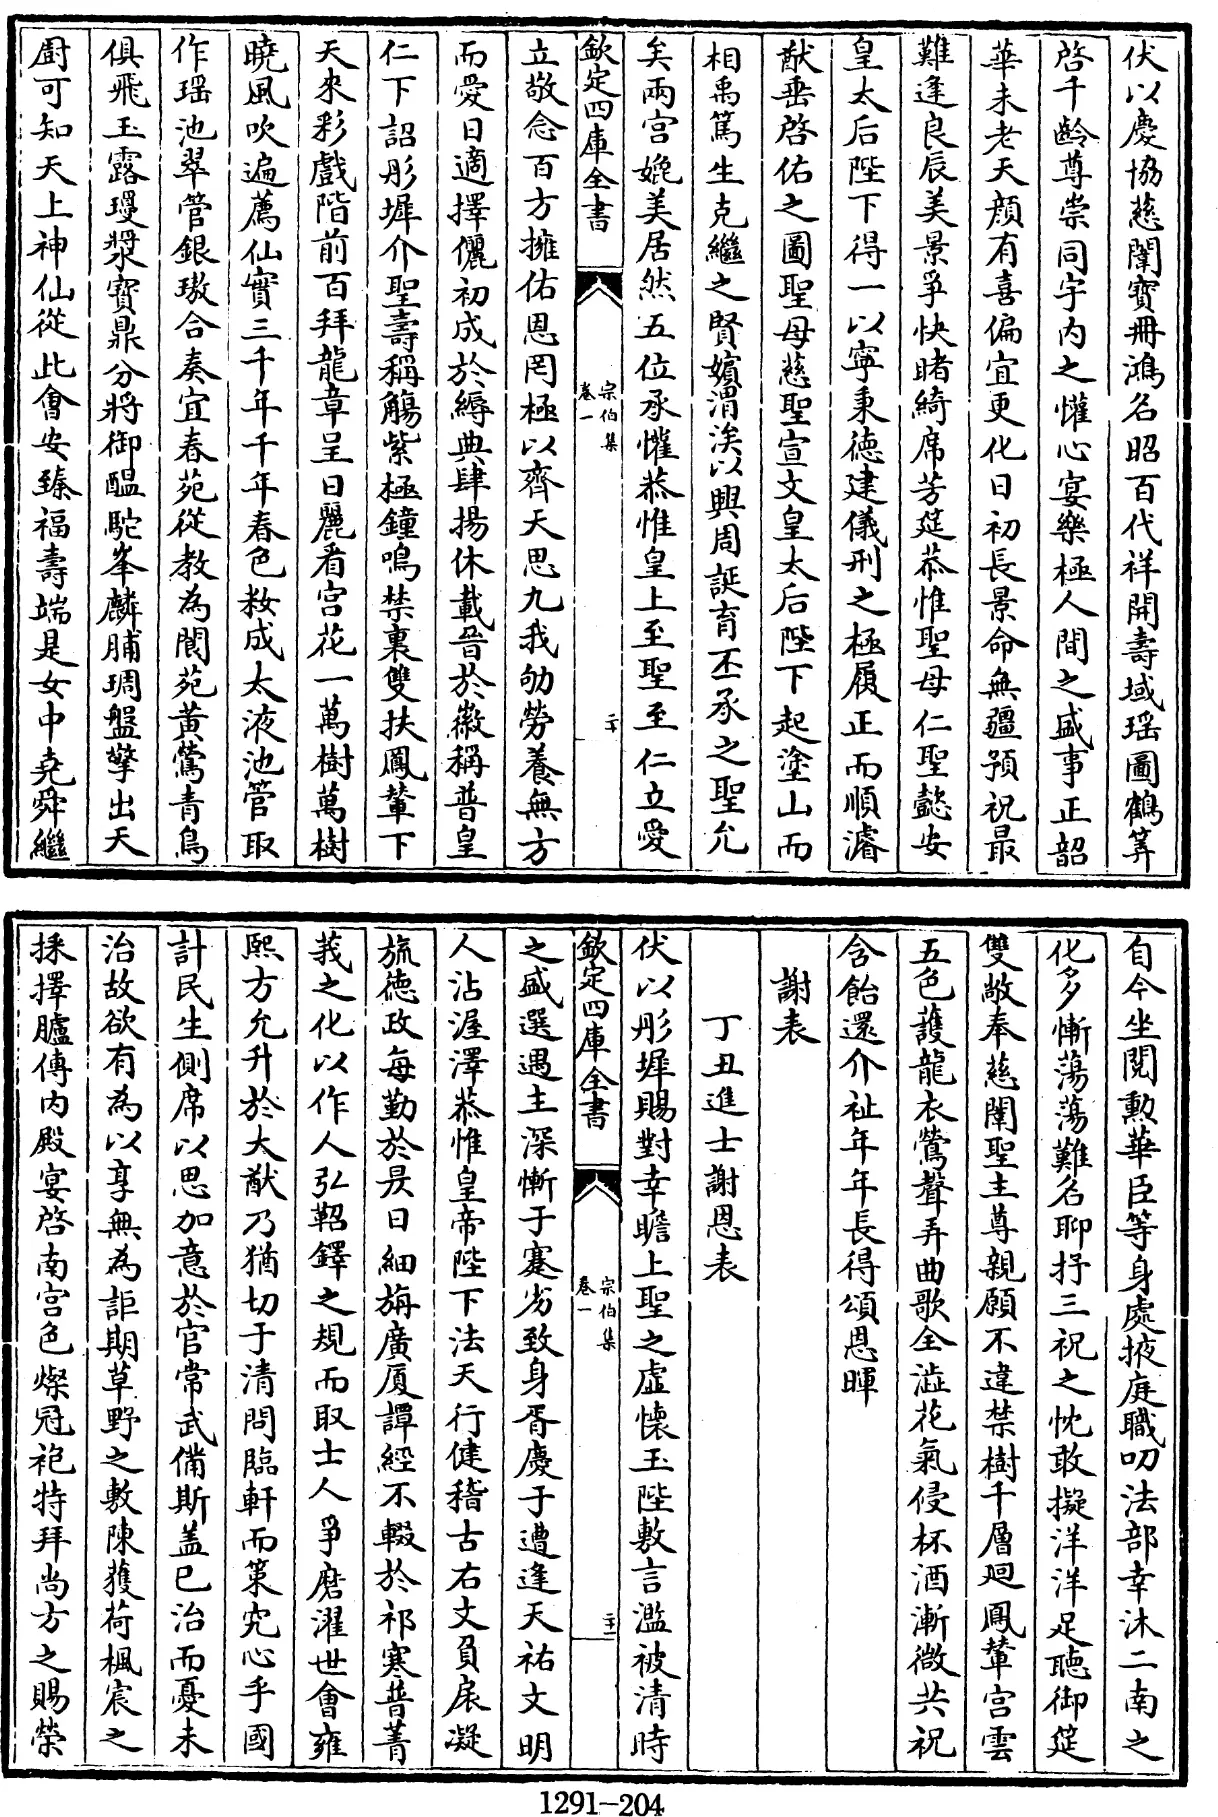 伏以慶協慈闈寶冊鴻名昭百代祥開壽域瑤圖鶴筭
啓千齡尊崇同宇内之懽心宴樂極人間之盛事正韶
華未老天顔有喜偏宜更化日初長景命無疆預祝最
難逢良辰美景爭快睹綺席芳筵恭惟聖母仁聖懿安
皇太后陛下得一以寧秉德建儀刑之極履正而順濬
猷垂啓佑之圖聖母慈聖宣文皇太后陛下起塗山而
相禹篤生克繼之賢嬪渭涘以興周誕育丕承之聖允
矣兩宫媲美居然五位承懽恭惟皇上至聖至仁立愛
欽定四庫全書
宗伯集
卷一
二十
立敬念百方擁佑恩罔極以齊天思九我劬勞養無方
而愛日適擇儷初成於縟典肆揚休載晉於徽稱普皇
仁下詔彤墀介聖壽稱觴紫極鐘鳴禁裏雙扶鳳輦下
天來彩戲階前百拜龍章呈日麗看宫花一萬樹萬樹
曉風吹遍薦仙實三千年千年春色籹成太液池管取
作瑶池翠管銀璈合奏宜春苑從教為閬苑黄鶯青鳥
俱飛玉露瓊漿寶鼎分將御醞駝峯麟脯琱盤擎出天
廚可知天上神仙從此會安臻福壽端是女中堯舜繼
自今坐閲勲華臣等身處掖庭職叨法部幸沐二南之
化多慚蕩蕩難名聊抒三祝之忱敢擬洋洋足聽御筵
雙敞奉慈闈聖主尊親願不違禁樹千層迴鳳輦宫雲
五色護龍衣鶯聲弄曲歌全澁花氣侵杯酒漸微共祝
含飴還介祉年年長得頌恩暉
謝表
丁丑進士謝恩表
伏以彤墀賜對幸瞻上聖之虚懷玉陛敷言濫被清時
欽定四庫全書
宗伯集
卷一
二十一
之盛選遇主深慚于蹇劣致身胥慶于遭逢天祐文明
人沾渥澤恭惟皇帝陛下法天行健稽古右文負扆凝
旒德政每勤於昃日細旃廣厦譚經不輟於祁寒普菁
莪之化以作人弘鞀鐸之規而取士人爭磨濯世會雍
熙方允升於大猷乃猶切于清問臨軒而策究心乎國
計民生側席以思加意於官常武備斯盖已治而憂未
治故欲有為以享無為詎期草野之敷陳獲荷楓宸之
採擇臚傳内殿宴啓南宫色燦冠袍特拜尚方之賜榮
1291-204